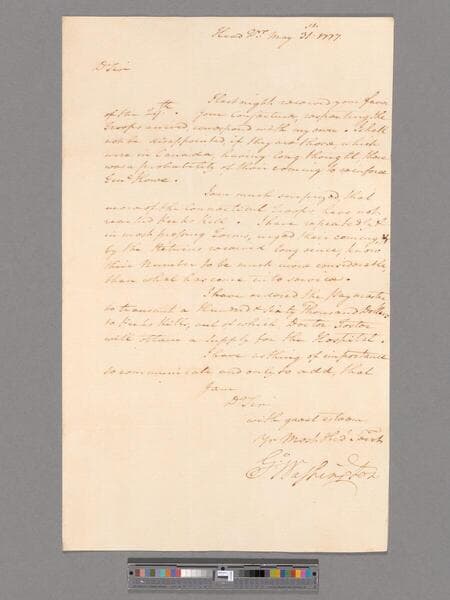 Head Qrs. May 31st: 1777.
Dr Sir
I last night received your favor
of the 29th. Your Conjecture, respecting the
Troops arrived correspond with my own. I shall
not be disappointed if they are those which
were in Canada, having long thought there
was a probability of their coming to reinforce
Genl Howe.
I am much surprized that
more of the Connecticut Troops have not
reached Peeks Kill. I have repeatedly &
in most pressing Terms, urged their coming &
by the Returns received long since, know
their Number to be much more considerable
than what has come into service.
I have ordered the paymaster
to transmit a Hundred & Sixty Thousand Dollrs
to Peeks Kill, out of which Doctor Foster
will obtain a supply for the Hospital.
I have nothing of importance
to communicate and only to add, that
I am
Dr Sir
with great esteem
Yr Most Obed Servt
Go: Washington